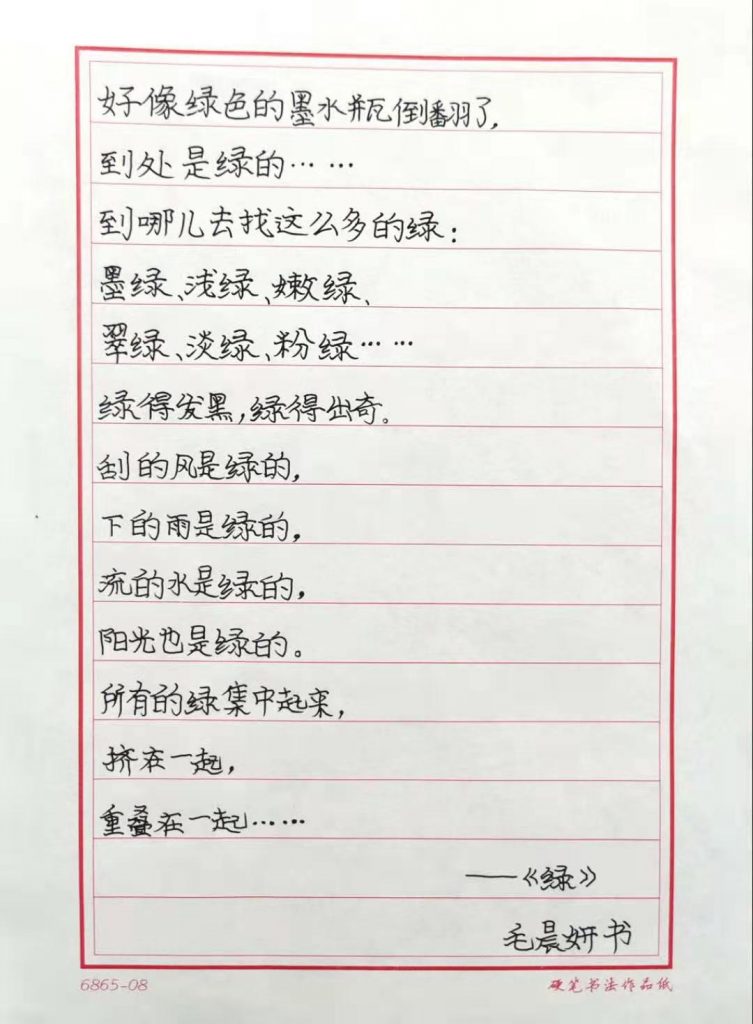 好像绿色的墨水瓶倒翻了,
到处是绿的……
到哪儿去找这么多的绿：
墨绿、浅绿、嫩绿、
翠绿、淡绿、粉绿……
绿得发黑,绿得出奇。
刮的风是绿的,
下的雨是绿的,
流的水是绿的,
阳光也是绿的。
所有的绿集中起来,
挤在一起,
重叠在一起……
——《绿》
毛晨妍书
6865-08 硬笔书法作品纸